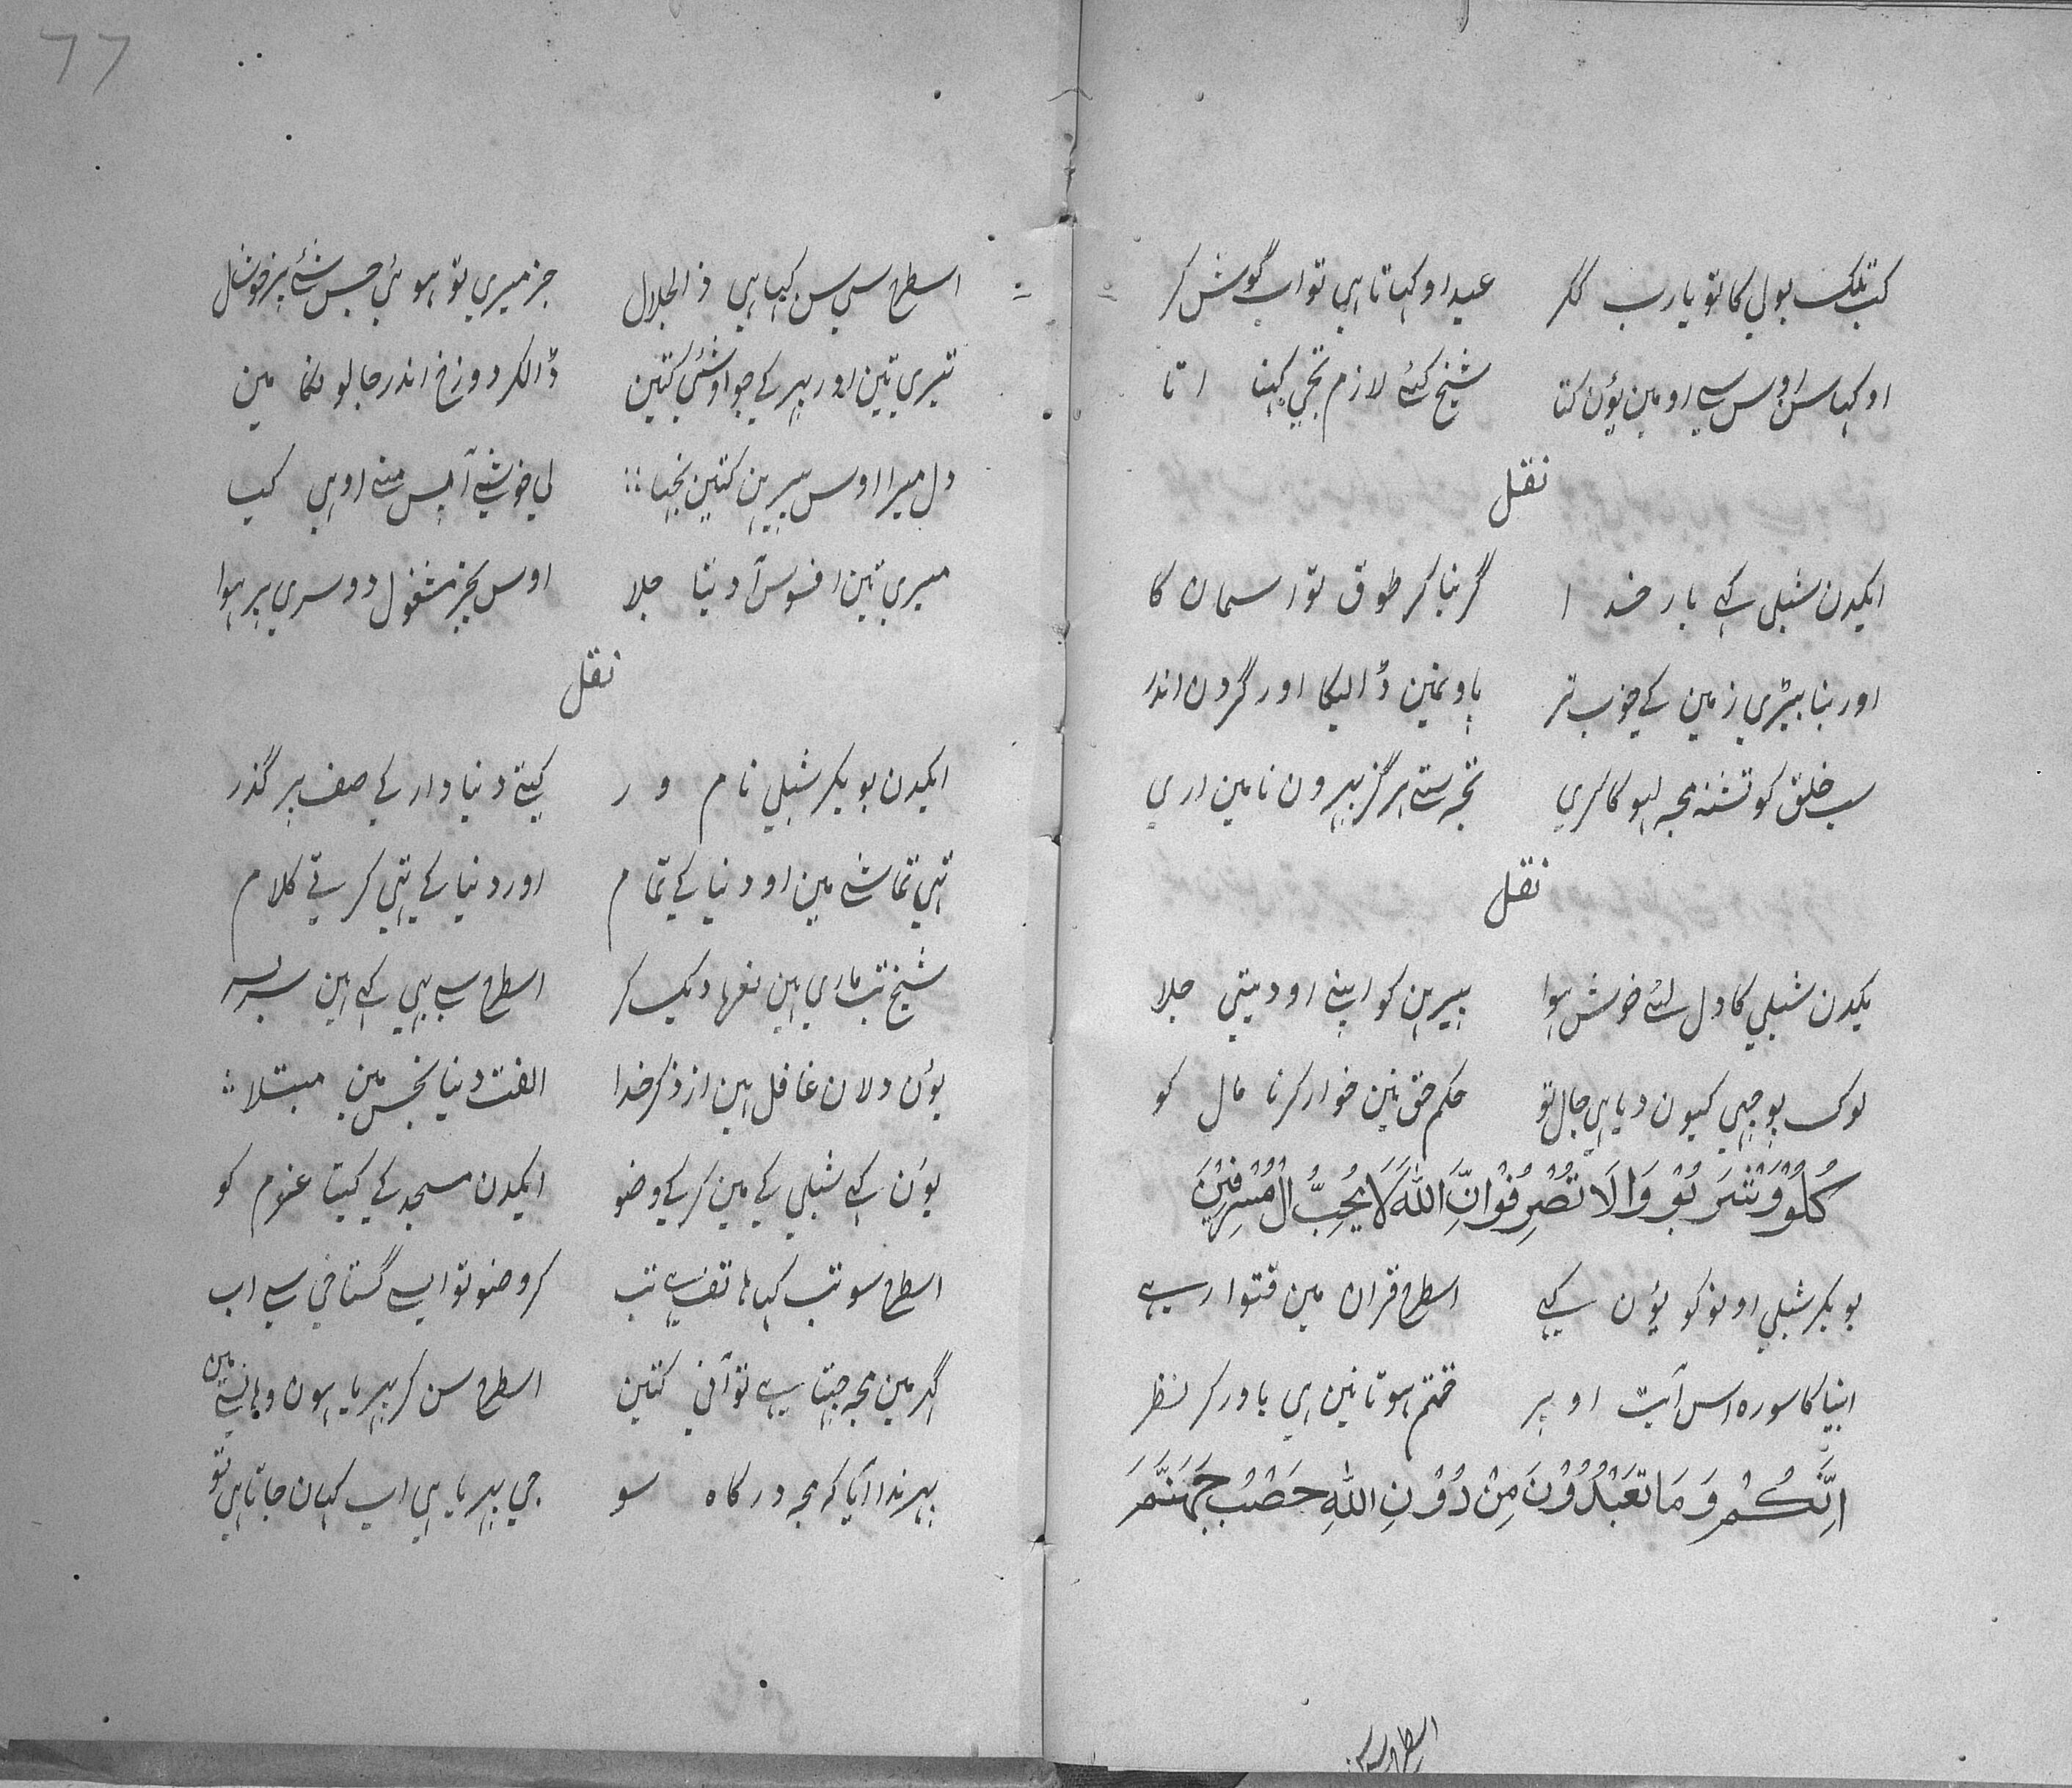 کب تلک بولی کا تو یارب مگر عید او کہاتا ہی تو اب گوش کر
او کہا سن اوس سے او مین یون کتا شیخ کئے لازم تجی کہنا اتا
نقل
ایکدن شبلی کہے بار خدا گر بنا کر طوق تو اسمان کا
اور بنا بیڑی زمین کے خوب تر پاونمین ڈالیکا اور گردن اندر
سب خلق کو تشنہ مجہ لہو کا کری تجہ ستے ہرگز پہرون نا مین اری
نقل
یکدن شبلی کا دل لئے خوش ہوا پیرہن کو اپنے او دیتی جلا
لوک پوچہی کیون دیا ہی جال تو حکم حق نین خوار کرنا مال کو
كُلُوْ وَشْرَبُوْ وَالَا تُصْرِفُوْا اِنَّ اللّٰهَ لَا يُحِبُّ الْمُسْرِفِيْنَ
بوبکر شبلی اونوکو یون کہے اسطرح قران مین فتوا رہے
انبیا کا سورہ اس آیت اوپر ختم ہوتا نین ہی یاور کر نظر
اِنَّكُمْ وَمَا تَعْبُدُوْنَ مِنْ دُوْنِ اللّٰهِ حَصَبُ جَهَنَّمَ
اسطرح
اسطرح سی سن کہا ہی ذالجلال جز میری تو ہوئی جس شئے پر خوشال
تیری تین اور پہر کے جو اوشئی کتین ڈالکر دوزخ اندر جالونکا مین
دل میرا اوس پیرہن کتین لی خوشی آپس منے اوہی
میری تین افسوس آ دیتا جلا اوس بجز مشغول دوسری پر ہوا
نقل
ایکدن بوبکر شبلی نام ور کیتے دنیا دار کے صف پر گذر
تہی تماشے مین او دنیا کے تمام اور دنیا کے تہی کرتے کلام
شیخ تب ماری ہین نعرہ دیک کر اسطرح سے پہی کہے ہین سربسر
یون دلان غافل ہین از ذکر خدا الفت دنیا نجس مین مبتلا
یون کہے شبلی کے مین کر کے وضو ایکدن مسجد کے کیتا عزم کو
اسطرح سو تب کہا ہاتف نے تب کر وضو تو ایسے گستاخی سے اب
گہر مین مجہ تو آنے کتین اسطرح سن کر پہریا ہون وہانستے مین
پہر ندا آیا کہ مجہ درگاہ سو جی پہریا ہی اب کہان جاتا ہی تو
77